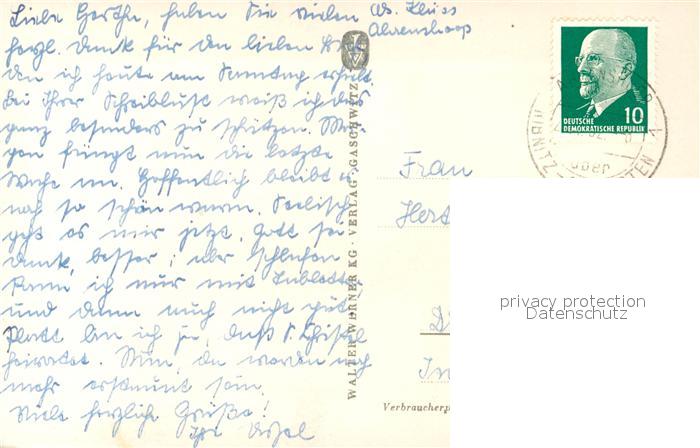 Liebe Gerthe, haben Sie vielen
herzl. Dank für den lieben Brief
den ich heute am Sonntag erhielt.
Bei Ihrer Schreiblust weiß ich das
ganz besonders zu schätzen. Mor-
gen fängt nun die letzte
Woche an. Hoffentlich bleibt es
noch so schön warm. Seelisch
geht es mir jetzt, Gott sei
Dank, besser; aber schlafen
kann ich nur mit Tabletten
und dann auch nicht gut.
Platt bin ich ja, daß
heiratet. Nun, da werden noch
mehr erstaunt sein.
Viele herzliche Grüße!
Ihr
Ahrenshoop
WALTER WERNER KG · VERLAG · GASCHWITZ
10
DEUTSCHE
DEMOKRATISCHE REPUBLIK
über
Frau
Hert
In
Verbraucherp
privacy protection
Datenschutz